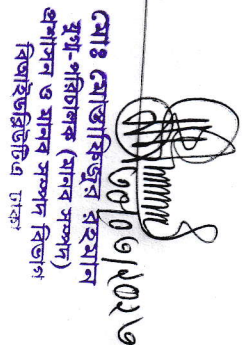 ১০/০৩/২০২৩
মোঃ মোস্তাফিজুর রহমান
যুগ্ম-পরিচালক (মানব সম্পদ)
প্রশাসন ও মানব সম্পদ বিভাগ
বিআইডব্লিউটিএ, ঢাকা